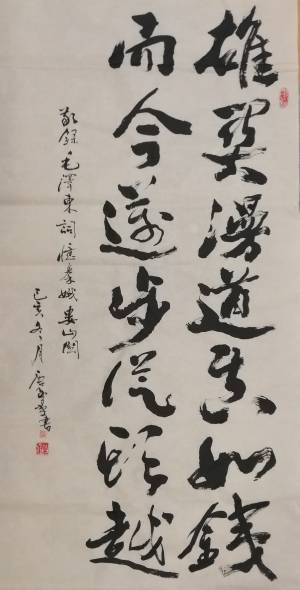 雄関漫道真如鐵
而今邁步從頭越
敬錄毛澤東詞憶秦娥婁山關
己亥冬月書